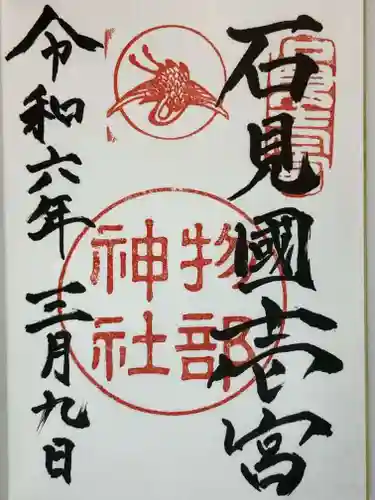 石見國壱宮
物部
神社
令和六年三月九日